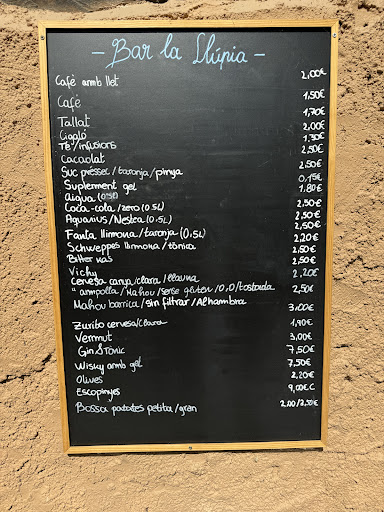 - Bar la Llúpia -
Cafè amb llet 2,00€
Café 1,50€
Tallat 1,70€
Cigaló 2,00€
Té/infusions 1.30€
Cacaolat 2,50€
Suc préssec/taronja/pinya 2,50€
Suplement gel 0,15€
Aigua (0'5L) 1.80€
Coca-cola/zero (0.5L) 2,50€
Aquarius/Nestea (0,5L) 2,50€
Fanta llimona/taronja (0,5L) 2,50€
Schweppes llimona/tònica 2,20€
Bitter kas 2,50€
Vichy 2,50€
Cervesa canya/clara/llauna 2,20€
" ampolla/Mahou/sense gluten/0,0/tostada 2,50€
Mahou barrica/sin filtrar/Alhambra 3,00€
Zurito cervesa/clara 1,90€
Vermut 3,00€
Gin&Tònic 7,50€
Wisky amb gel 7,50€
Olives 2,20€
Escopinyes 9,00€
Bossa patates petita/gran 2,00/2,50€